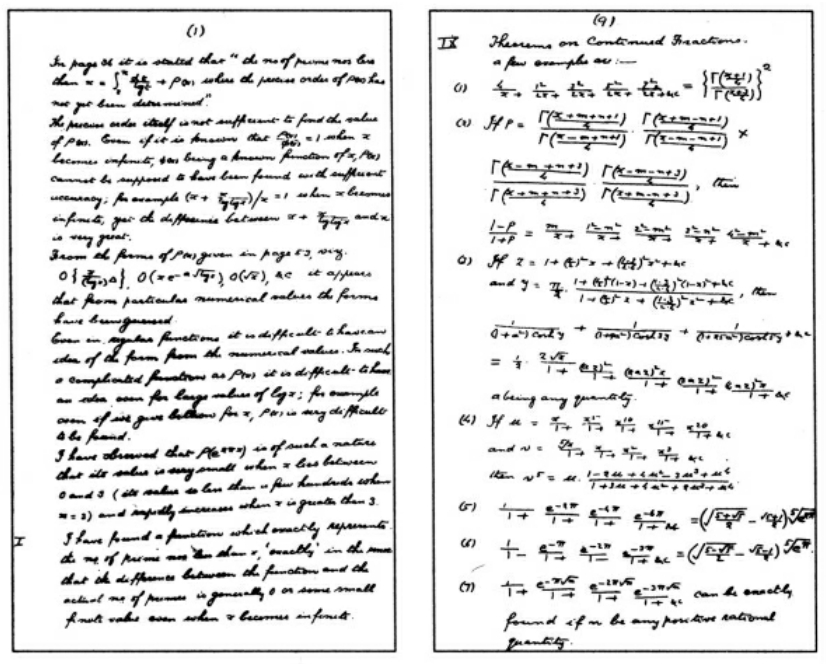 (1)
In page 36 it is stated that "the no of prime nos less
than x = ∫₂ˣ dt/log t + ρ(x) where the precise order of ρ(x) has
not yet been determined."
The precise order itself is not sufficient to find the value
of ρ(x). Even if it is known that ρ(x)/φ(x) = 1 when x
becomes infinite, φ(x) being a known function of x, ρ(x)
cannot be supposed to have been found with sufficient
accuracy; for example (x + x/log log x)/x = 1 when x becomes
infinite, yet the difference between x + x/log log x and x
is very great.
From the forms of ρ(x) given in page 53, viz.
O{x/(log x)^Δ}, O(xe^{-a√log x}), O(√x), &c it appears
that from particular numerical values the forms
have been guessed.
Even in regular functions it is difficult to have an
idea of the form from the numerical values. In such
a complicated function as ρ(x) it is difficult to have
an idea even for large values of log x; for example
even if we give for x, ρ(x) is very difficult
to be found.
I have observed that ρ(e^{2πx}) is of such a nature
that its value is very small when x lies between
0 and 3 (its value is less than a few hundreds when
x = 3) and rapidly increases when x is greater than 3.
I I have found a function which exactly represents
the no of prime nos less than x, 'exactly' in the sense
that the difference between the function and the
actual no of primes is generally 0 or some small
finite value even when x becomes infinite.
(9)
IX Theorems on Continued Fractions.
a few examples are :—
(1) 4/x + 1²/2x + 3²/2x + 5²/2x + 7²/2x + &c = {Γ((x+1)/4)/Γ((x+3)/4)}²
(2) If P = Γ((x+m+n+1)/4)/Γ((x-m+n+1)/4) · Γ((x+m-n+1)/4)/Γ((x-m-n+1)/4) ×
Γ((x-m+n+3)/4)/Γ((x+m+n+3)/4) · Γ((x-m-n+3)/4)/Γ((x+m-n+3)/4), then
(1-P)/(1+P) = m/x + (1²-n²)/x + (2²-m²)/x + (3²-n²)/x + (4²-m²)/x + &c
(3) If z = 1 + (1/2)²x + (1·3/2·4)²x² + &c
and y = π/2 · (1 + (1/2)²(1-x) + (1·3/2·4)²(1-x)² + &c)/(1 + (1/2)²x + (1·3/2·4)²x² + &c), then
1/((1+a²) cosh y) + 1/((1+9a²) cosh 3y) + 1/((1+25a²) cosh 5y) + &c
= 1/2 · z√x/1 + (az)²/1 + (2az)²x/1 + (3az)²/1 + (4az)²x/1 + &c
a being any quantity.
(4) If u = x/1 + x⁵/1 + x¹⁰/1 + x¹⁵/1 + x²⁰/1 + &c
and v = ⁵√x/1 + x/1 + x²/1 + x³/1 + &c
then v⁵ = u · (1-2u+4u²-3u³+u⁴)/(1+3u+4u²+2u³+u⁴).
(5) 1/1 + e^{-2π}/1 + e^{-4π}/1 + e^{-6π}/1 + &c = (√((5+√5)/2) − (√5+1)/2) ⁵√e^{2π}
(6) 1/1 − e^{-π}/1 + e^{-2π}/1 − e^{-3π}/1 + &c = (√((5-√5)/2) − (√5-1)/2) ⁵√e^π.
(7) 1/1 + e^{-π√n}/1 + e^{-2π√n}/1 + e^{-3π√n}/1 + &c can be exactly
found if n be any positive rational
quantity.